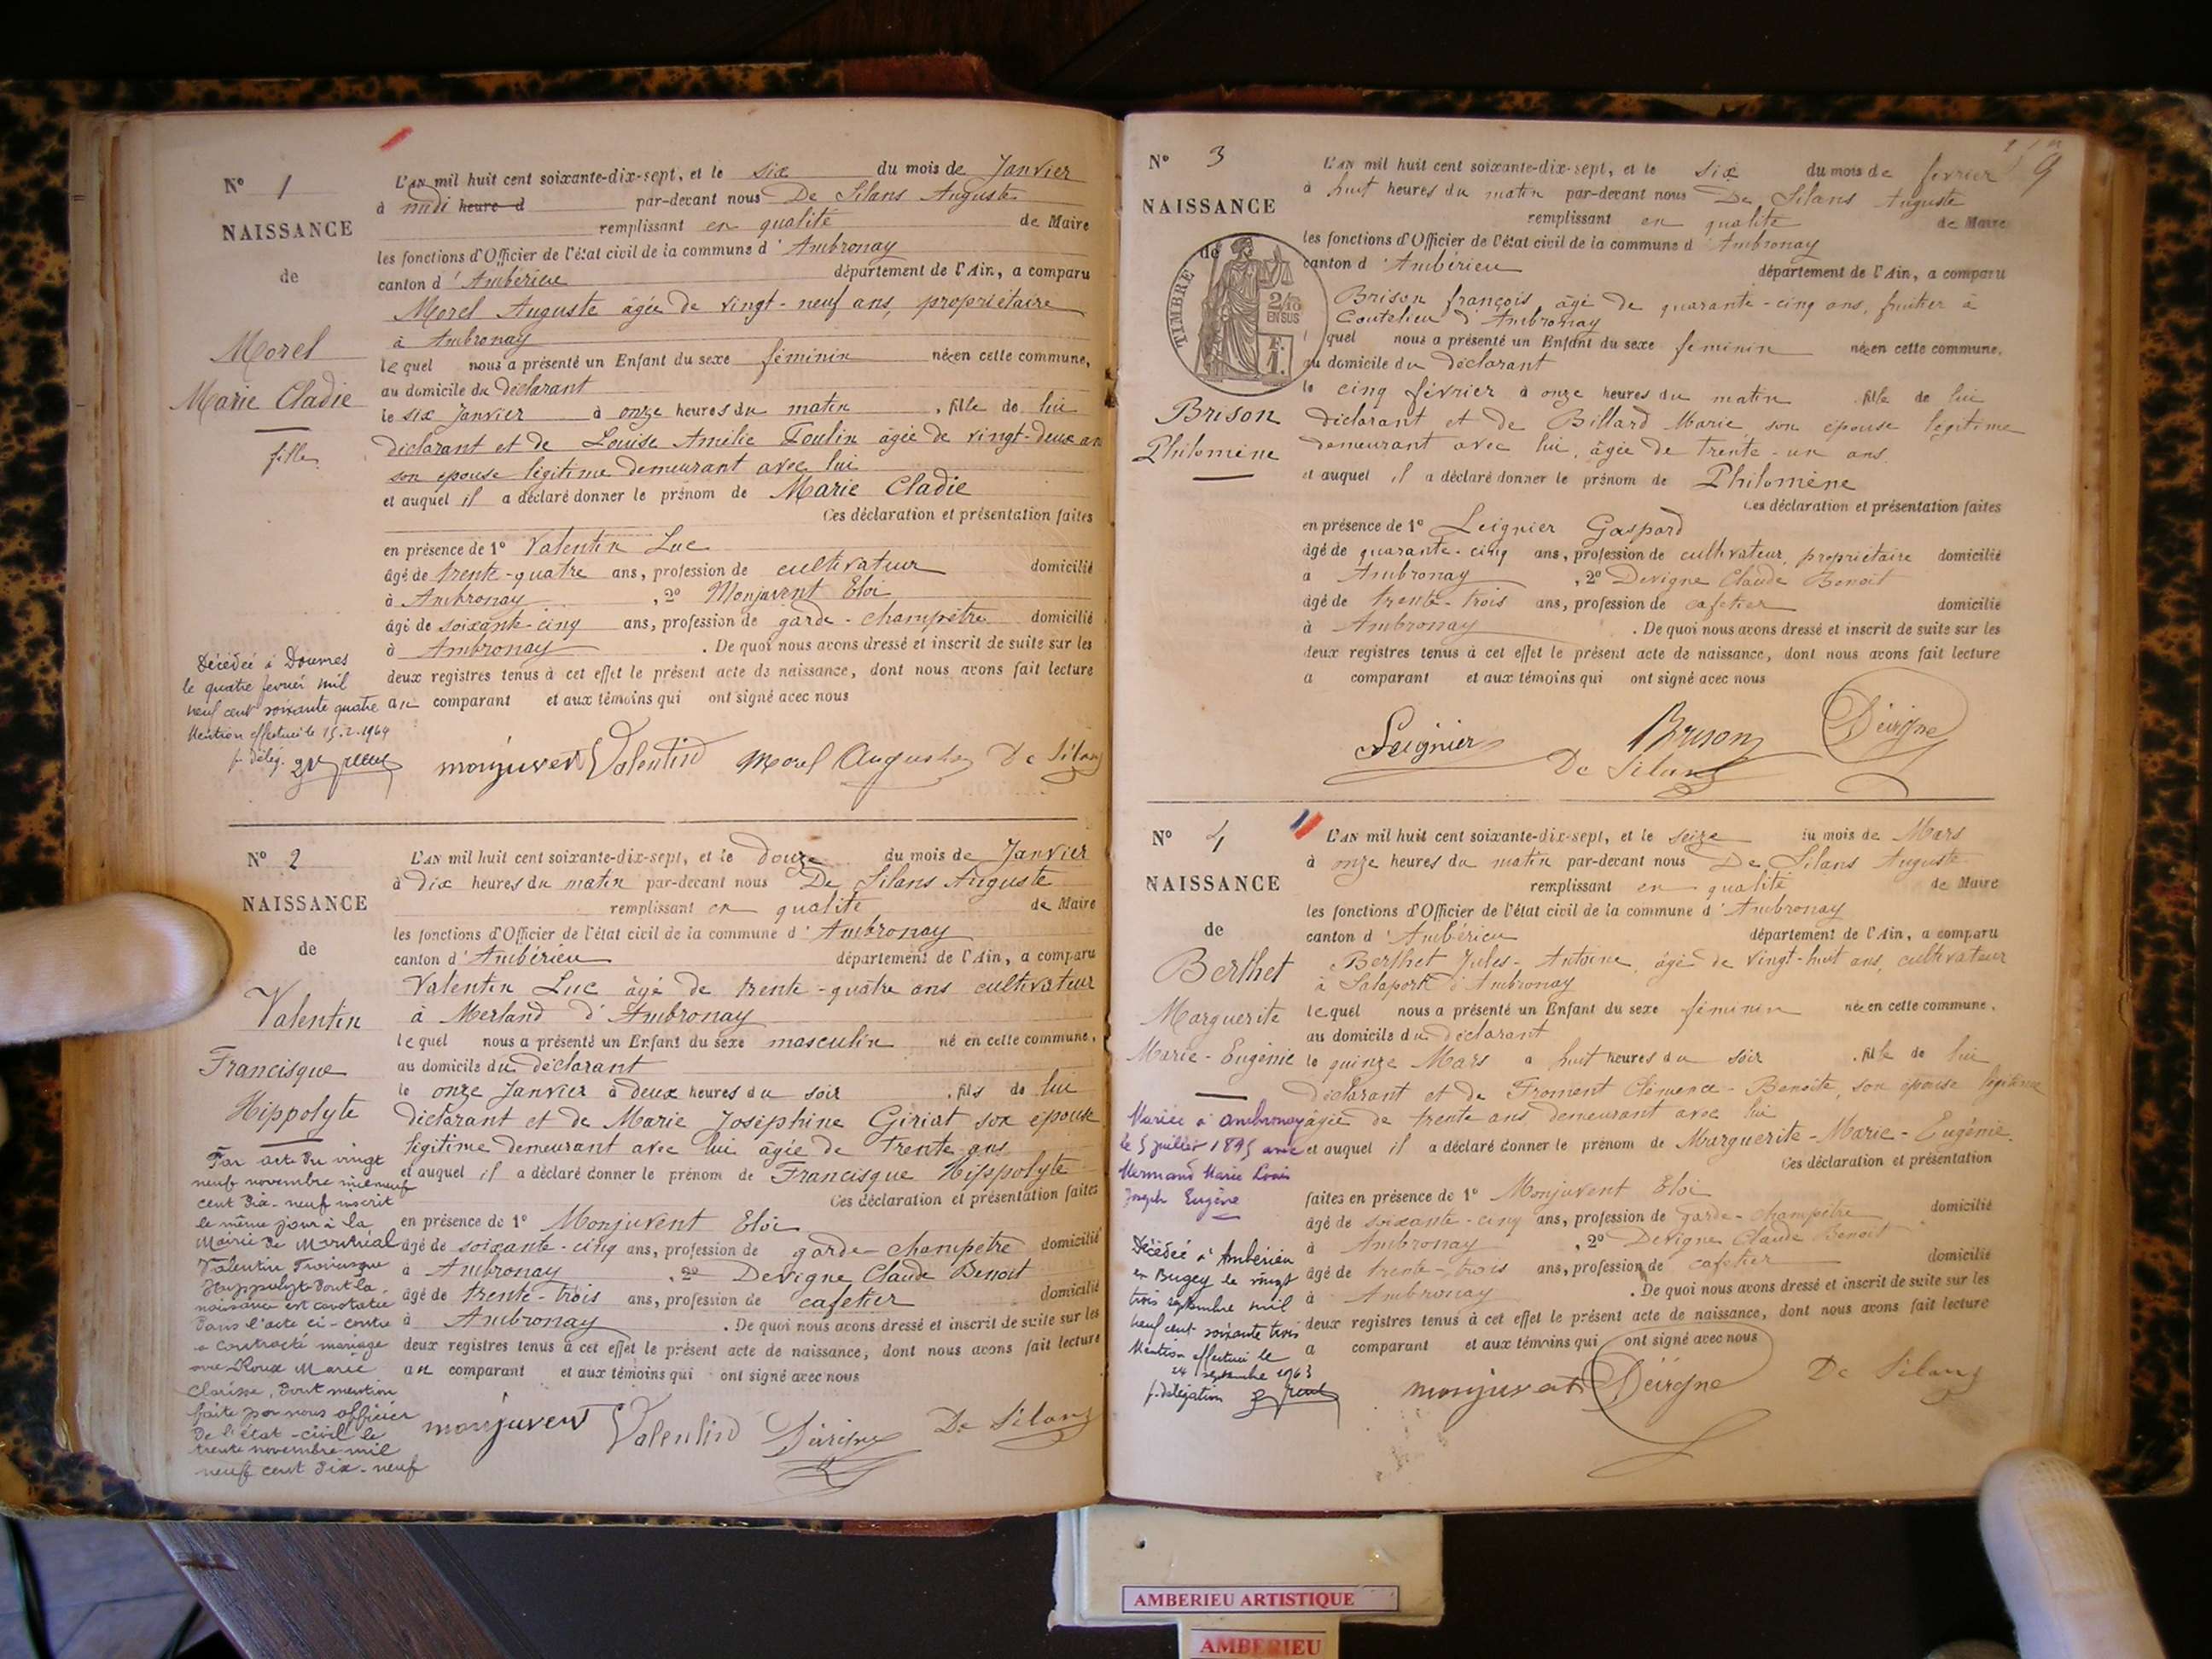 N° 1
NAISSANCE
de
Morel
Marie Cladie
fille
L'AN mil huit cent soixante-dix-sept, et le six du mois de Janvier
à midi heure d par-devant nous De Silans Auguste
remplissant en qualité de Maire
les fonctions d'Officier de l'état civil de la commune d'Ambronay
canton d'Ambérieu département de l'Ain, a comparu
Morel Auguste âgée de vingt-neuf ans, propriétaire
à Ambronay
lequel nous a présenté un Enfant du sexe féminin née en cette commune,
au domicile du déclarant
le six Janvier à onze heures du matin, fille de lui
déclarant et de Louise Amélie Toulin âgée de vingt-deux an
son épouse légitime demeurant avec lui
et auquel il a déclaré donner le prénom de Marie Cladie
Ces déclaration et présentation faites
en présence de 1° Valentin Luc
âgé de trente-quatre ans, profession de cultivateur domicilié
à Ambronay, 2° Monjuvent Eloi
âgé de soixante-cinq ans, profession de garde-champêtre domicilié
à Ambronay. De quoi nous avons dressé et inscrit de suite sur les
deux registres tenus à cet effet le présent acte de naissance, dont nous avons fait lecture
au comparant et aux témoins qui ont signé avec nous
monjuvent Valentin Morel Auguste De Silans
Décédée à Douvres
le quatre fevrier mil
neuf cent soixante quatre
Mention effectuée le 15.2.1964
p. délég.
N° 2
NAISSANCE
de
Valentin
Francisque
Hippolyte
L'AN mil huit cent soixante-dix-sept, et le douze du mois de Janvier
à dix heures du matin par-devant nous De Silans Auguste
remplissant en qualité de Maire
les fonctions d'Officier de l'état civil de la commune d'Ambronay
canton d'Ambérieu département de l'Ain, a comparu
Valentin Luc âgé de trente-quatre ans cultivateur
à Merland d'Ambronay
lequel nous a présenté un Enfant du sexe masculin né en cette commune,
au domicile du déclarant
le onze Janvier à deux heures du soir, fils de lui
déclarant et de Marie Joséphine Giriat son épouse
légitime demeurant avec lui âgée de trente ans
et auquel il a déclaré donner le prénom de Francisque Hippolyte
Ces déclaration et présentation faites
en présence de 1° Monjuvent Eloi
âgé de soixante-cinq ans, profession de garde-champêtre domicilié
à Ambronay, 2° Devigne Claude Benoit
âgé de trente-trois ans, profession de cafetier domicilié
à Ambronay. De quoi nous avons dressé et inscrit de suite sur les
deux registres tenus à cet effet le présent acte de naissance, dont nous avons fait lecture
au comparant et aux témoins qui ont signé avec nous
monjuvent Valentin Devigne De Silans
Par acte du vingt
neuf novembre mil neuf
cent dix-neuf inscrit
le même jour à la
Mairie de Martréal
Valentin Francisque
Hippolyt dont la
naissance est constatée
dans l'acte ci-contre
a contracté mariage
avec Roux Marie
Clarisse, dont mention
faite par nous officier
de l'état-civil le
trente novembre mil
neuf cent dix-neuf
9
N° 3
NAISSANCE
de
TIMBRE
2/10
EN SUS
F.
1.
Brison
Philomène
L'AN mil huit cent soixante-dix-sept, et le six du mois de fevrier
à huit heures du matin par-devant nous De Silans Auguste
remplissant en qualité de Maire
les fonctions d'Officier de l'état civil de la commune d'Ambronay
canton d'Ambérieu département de l'Ain, a comparu
Brison françois, âgé de quarante-cinq ans, fruitier à
Coutelieu d'Ambronay
lequel nous a présenté un Enfant du sexe féminin née en cette commune,
au domicile du déclarant
le cinq février à onze heures du matin fille de lui
déclarant et de Billard Marie son épouse légitime
demeurant avec lui, âgée de trente-un ans
et auquel il a déclaré donner le prénom de Philomène
Ces déclaration et présentation faites
en présence de 1° Leignier Gaspard
âgé de quarante-cinq ans, profession de cultivateur propriétaire domicilié
à Ambronay, 2° Devigne Claude Benoit
âgé de trente-trois ans, profession de cafetier domicilié
à Ambronay. De quoi nous avons dressé et inscrit de suite sur les
deux registres tenus à cet effet le présent acte de naissance, dont nous avons fait lecture
a comparant et aux témoins qui ont signé avec nous
Leignier Brison Devigne
De Silans
N° 4
NAISSANCE
de
Berthet
Marguerite
Marie-Eugénie
L'AN mil huit cent soixante-dix-sept, et le seize du mois de Mars
à onze heures du matin par-devant nous De Silans Auguste
remplissant en qualité de Maire
les fonctions d'Officier de l'état civil de la commune d'Ambronay
canton d'Ambérieu département de l'Ain, a comparu
Berthet Jules-Antoine, âgé de vingt-huit ans, cultivateur
à Salaport d'Ambronay
lequel nous a présenté un Enfant du sexe féminin née en cette commune,
au domicile du déclarant
le quinze Mars à huit heures du soir, fille de lui
déclarant et de Froment Clémence-Benoite, son épouse légitime
âgée de trente ans demeurant avec lui
et auquel il a déclaré donner le prénom de Marguerite-Marie-Eugénie.
Ces déclaration et présentation
faites en présence de 1° Monjuvent Eloi
âgé de soixante-cinq ans, profession de garde-champêtre domicilié
à Ambronay, 2° Devigne Claude Benoit
âgé de trente-trois ans, profession de cafetier domicilié
à Ambronay. De quoi nous avons dressé et inscrit de suite sur les
deux registres tenus à cet effet le présent acte de naissance, dont nous avons fait lecture
a comparant et aux témoins qui ont signé avec nous
monjuvent Devigne De Silans
Mariée à Ambronay
le 5 juillet 1895 avec
Mermand Marie Louis
Joseph Eugène
Décédée à Ambérieu
en Bugey le vingt
trois septembre mil
neuf cent soixante trois
Mention effectuée le
24 septembre 1963
p. délégation
AMBERIEU ARTISTIQUE
AMBERIEU